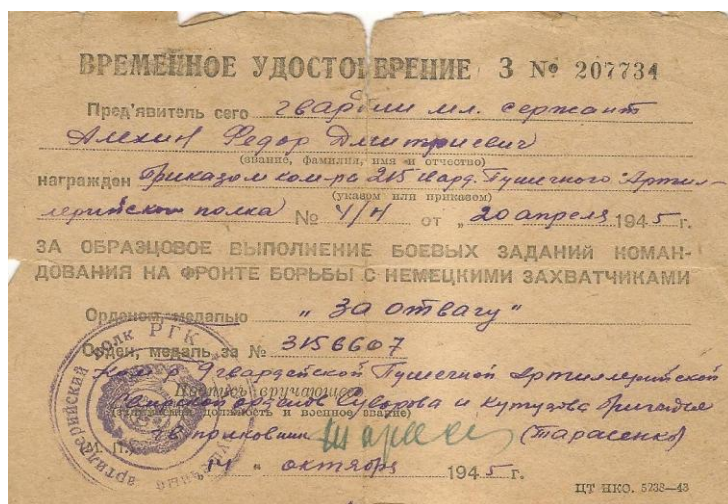 ВРЕМЕННОЕ УДОСТОВЕРЕНИЕ З № 207734
Пред'явитель сего гвардии мл. сержант
Алехин Федор Дмитриевич
(звание, фамилия, имя и отчество)
награжден Приказом ком-ра 215 гвард. Пушечного Артил-
(указом или приказом)
лерийского полка № 4/н от „20 апреля 1945 г.
ЗА ОБРАЗЦОВОЕ ВЫПОЛНЕНИЕ БОЕВЫХ ЗАДАНИЙ КОМАН-
ДОВАНИЯ НА ФРОНТЕ БОРЬБЫ С НЕМЕЦКИМИ ЗАХВАТЧИКАМИ
Орденом, медалью „За отвагу"
Орден, медаль за № 3156607
9 гвардейской Пушечной Артиллерийской
Подпись вручающего
ордено Суворова и Кутузова бригады
должность и военное звание)
полковник (Тарасенко)
М. П.
„14" октября 1945 г.
ЦТ НКО. 5238—43
артиллерийский полк РГК